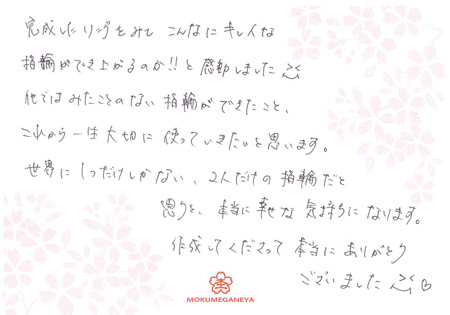 完成したリングをみて こんなに キレイな
指輪ができ上がるのか!! と感動しました
他ではみたことのない 指輪ができたこと、
これから一生大切に 使っていきたいと思います。
世界に1つだけしかない、2人だけの指輪だと
思うと、本当に幸せな気持ちになります。
作成してくださって 本当に ありがとう
ございました ♡
MOKUMEGANEYA